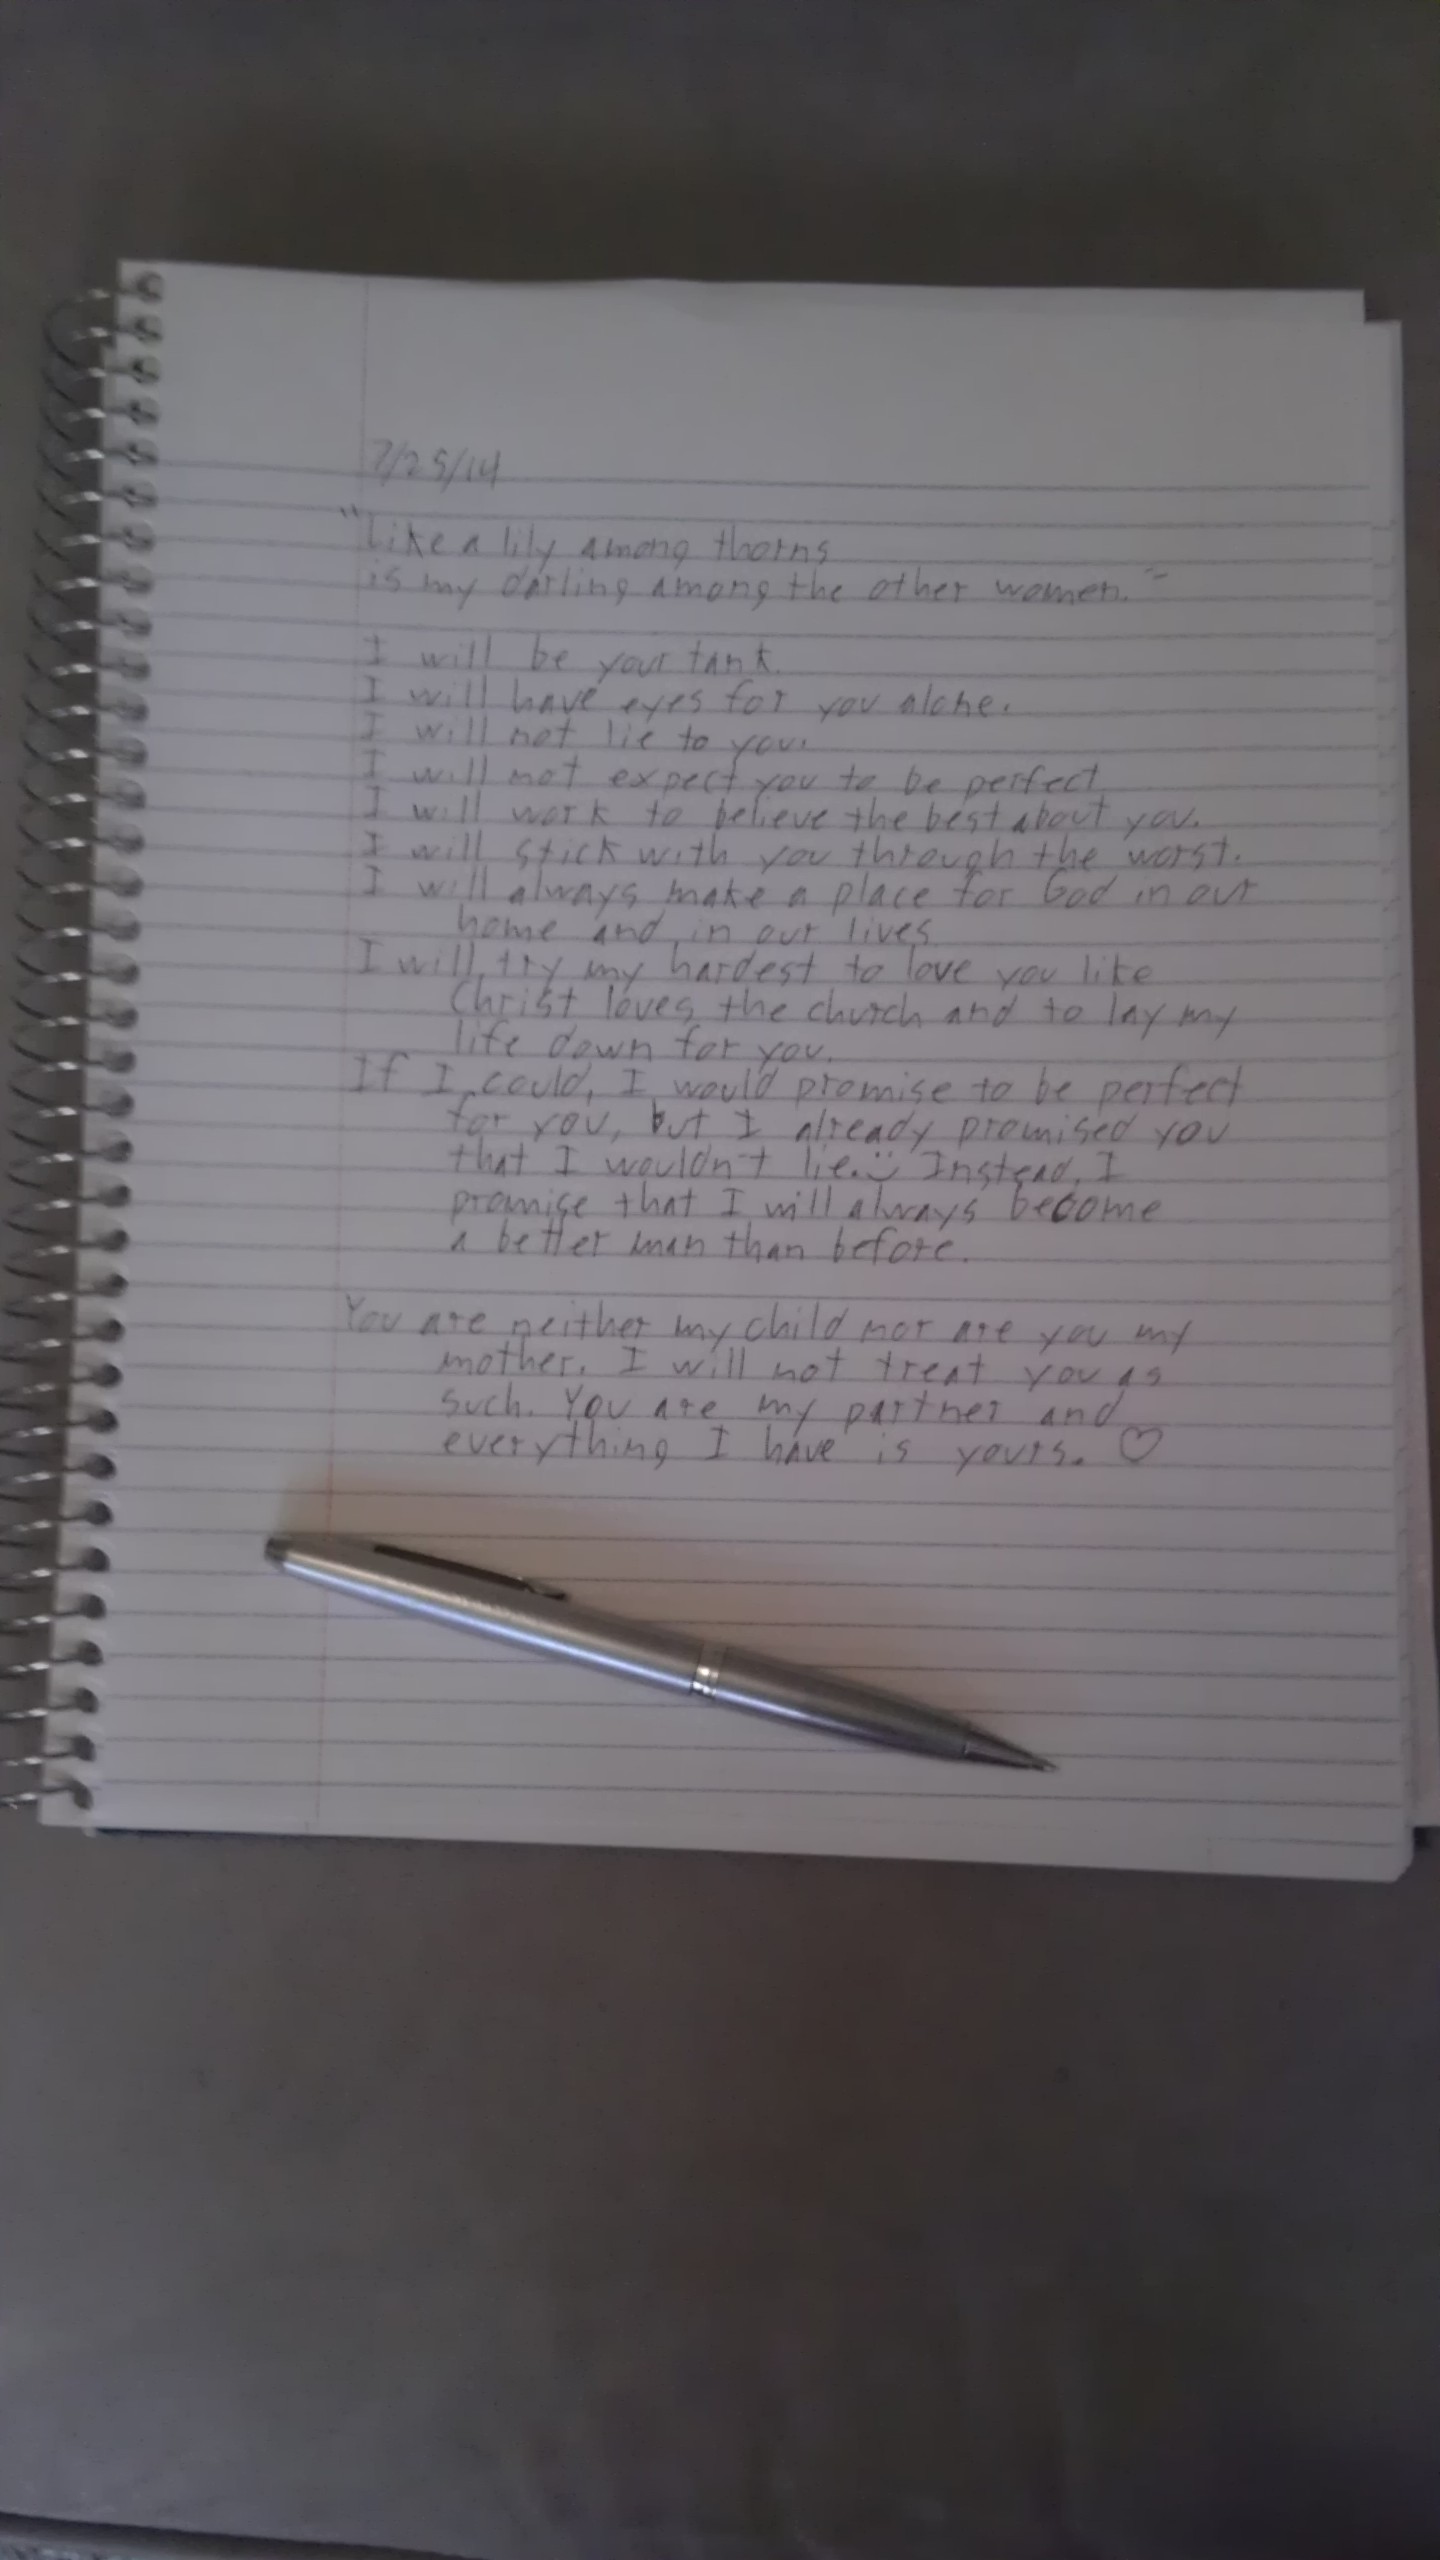 7/25/14
"Like a lily among thorns
is my darling among the other women."
I will be your tank.
I will have eyes for you alone.
I will not lie to you.
I will not expect you to be perfect.
I will work to believe the best about you.
I will stick with you through the worst.
I will always make a place for God in our
home and in our lives.
I will try my hardest to love you like
Christ loves the church and to lay my
life down for you.
If I could, I would promise to be perfect
for you, but I already promised you
that I wouldn't lie. :) Instead, I
promise that I will always become
a better man than before.
You are neither my child nor are you my
mother. I will not treat you as
such. You are my partner and
everything I have is yours. ♡